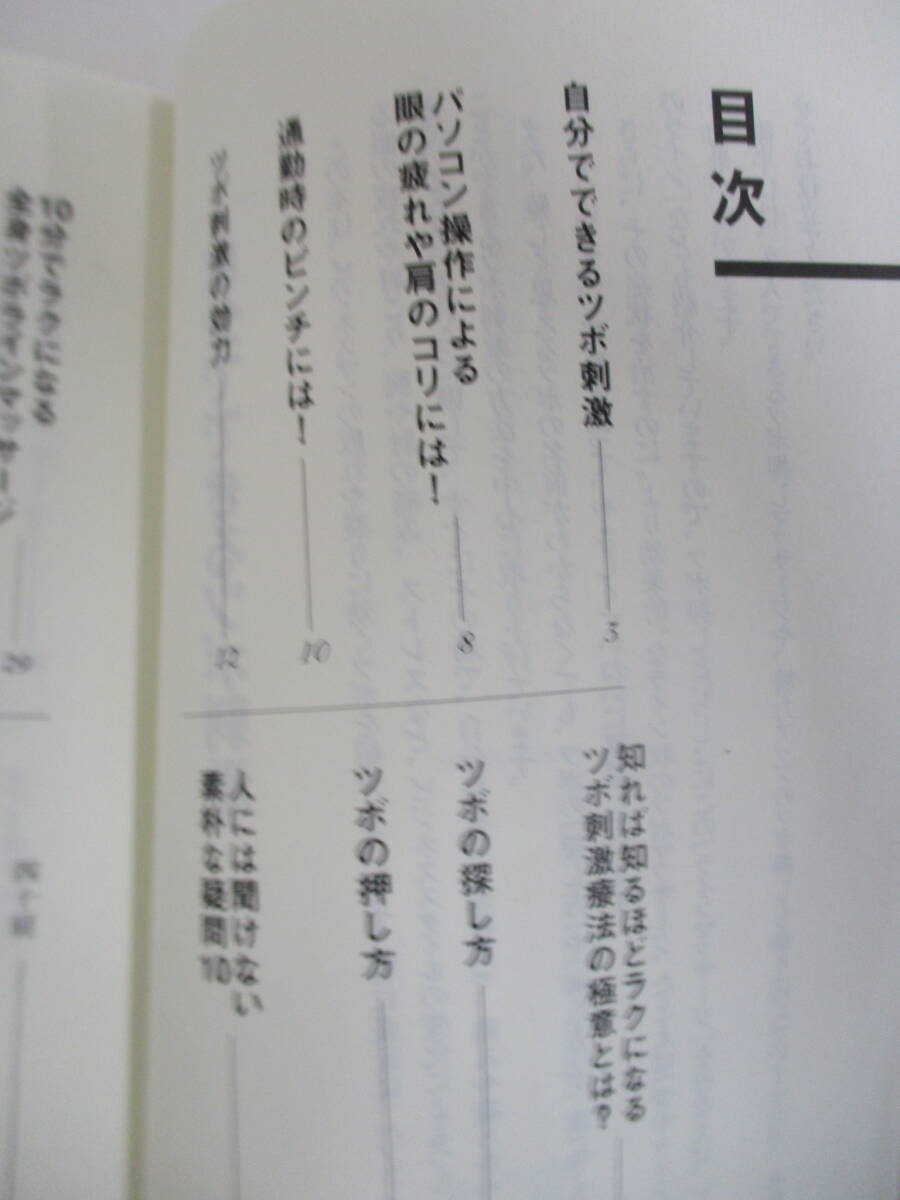 目次
自分でできるツボ刺激
3
パソコン操作による
眼の疲れや肩のコリには!
8
通勤時のピンチには!
10
ツボ刺激の効力
12
知れば知るほどラクになる
ツボ刺激療法の極意とは?
ツボの探し方
ツボの押し方
人には聞けない
素朴な疑問10
10分でラクになる